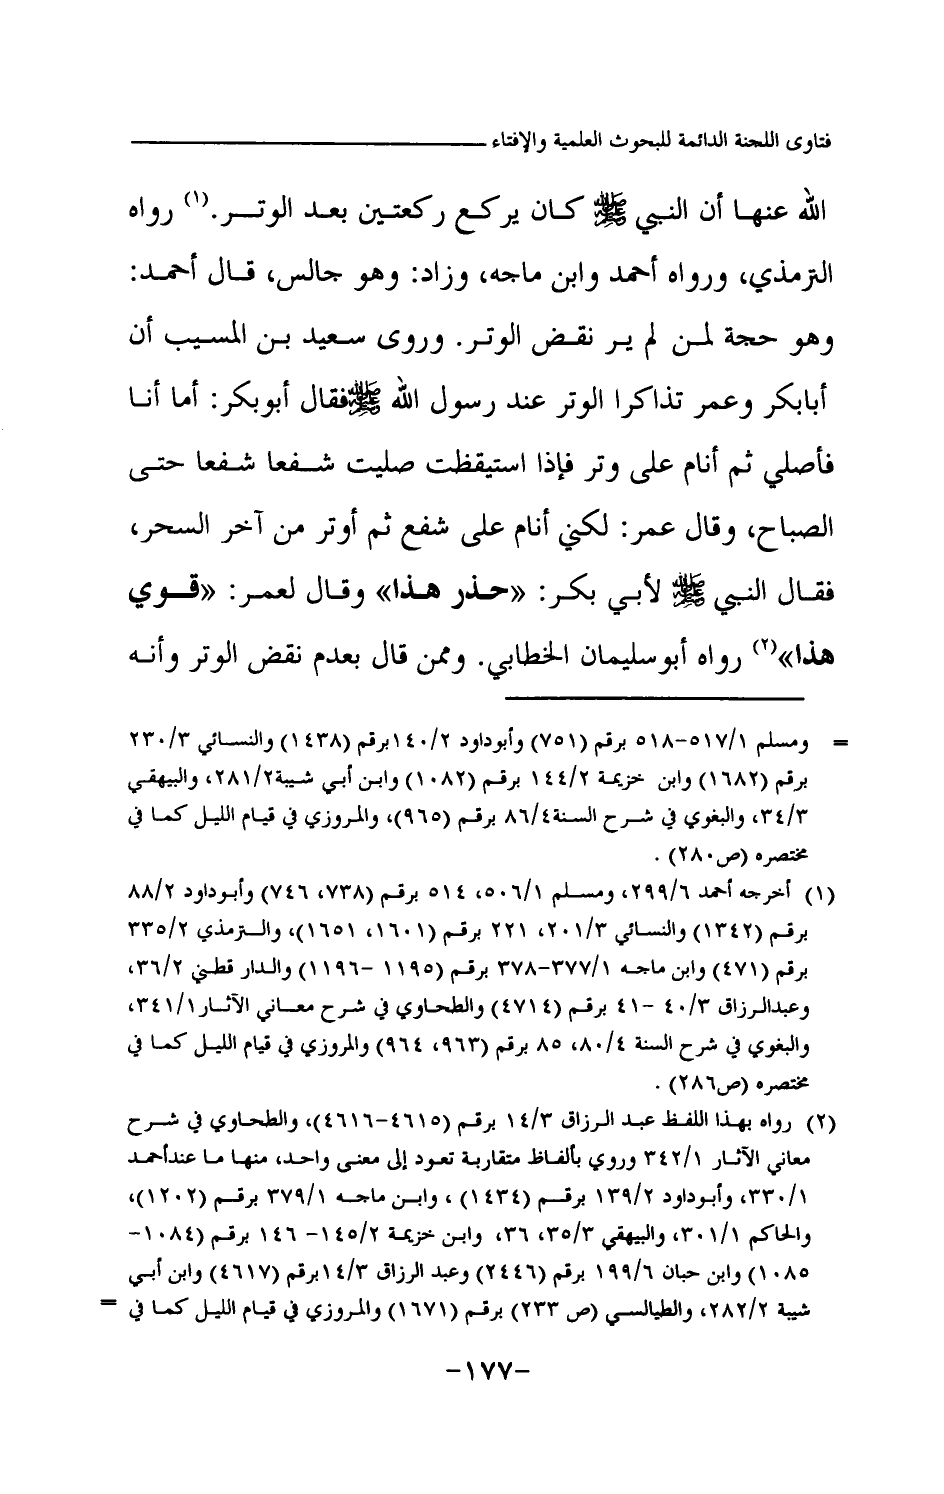 فتاوى اللجنة الدائمة للبحوث العلمية والإفتاء
الله عنها أن النبي ﷺ كان يركع ركعتين بعد الوتر.(١) رواه
الترمذي، ورواه أحمد وابن ماجه، وزاد: وهو جالس، قال أحمد:
وهو حجة لمن لم ير نقض الوتر. وروى سعيد بن المسيب أن
أبابكر وعمر تذاكرا الوتر عند رسول الله ﷺ فقال أبوبكر: أما أنا
فأصلي ثم أنام على وتر فإذا استيقظت صليت شفعا شفعا حتى
الصباح، وقال عمر: لكني أنام على شفع ثم أوتر من آخر السحر،
فقال النبي ﷺ لأبي بكر: «حذر هذا» وقال لعمر: «قوي
هذا»(٢) رواه أبوسليمان الخطابي. وممن قال بعدم نقض الوتر وأنه
= ومسلم ٥١٧/١-٥١٨ برقم (٧٥١) وأبوداود ١٤٠/٢ برقم (١٤٣٨) والنسائي ٢٣٠/٣
برقم (١٦٨٢) وابن خزيمة ١٤٤/٢ برقم (١٠٨٢) وابن أبي شيبة ٢٨١/٢، والبيهقي
٣٤/٣، والبغوي في شرح السنة ٨٦/٤ برقم (٩٦٥)، والمروزي في قيام الليل كما في
مختصره (ص٢٨٠) .
(١) أخرجه أحمد ٢٩٩/٦، ومسلم ٥٠٦/١، ٥١٤ برقم (٧٣٨، ٧٤٦) وأبوداود ٨٨/٢
برقم (١٣٤٢) والنسائي ٢٠١/٣، ٢٢١ برقم (١٦٠١، ١٦٥١)، والترمذي ٣٣٥/٢
برقم (٤٧١) وابن ماجه ٣٧٧/١-٣٧٨ برقم (١١٩٥ -١١٩٦) والدار قطني ٣٦/٢،
وعبدالرزاق ٤٠/٣ -٤١ برقم (٤٧١٤) والطحاوي في شرح معاني الآثار ٣٤١/١،
والبغوي في شرح السنة ٨٠/٤، ٨٥ برقم (٩٦٣، ٩٦٤) والمروزي في قيام الليل كما في
مختصره (ص٢٨٦) .
(٢) رواه بهذا اللفظ عبد الرزاق ١٤/٣ برقم (٤٦١٥-٤٦١٦)، والطحاوي في شرح
معاني الآثار ٣٤٢/١ وروي بألفاظ متقاربة تعود إلى معنى واحد، منها ما عندأحمد
٣٣٠/١، وأبوداود ١٣٩/٢ برقم (١٤٣٤) ، وابن ماجه ٣٧٩/١ برقم (١٢٠٢)،
والحاكم ٣٠١/١، والبيهقي ٣٥/٣، ٣٦، وابن خزيمة ١٤٥/٢- ١٤٦ برقم (١٠٨٤-
١٠٨٥) وابن حبان ١٩٩/٦ برقم (٢٤٤٦) وعبد الرزاق ١٤/٣ برقم (٤٦١٧) وابن أبي
شيبة ٢٨٢/٢، والطيالسي (ص ٢٣٣) برقم (١٦٧١) والمروزي في قيام الليل كما في =
-١٧٧-